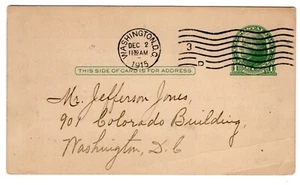 WASHINGTON, D.C.
DEC 2
1915
3
D
THIS SIDE OF CARD IS FOR ADDRESS
Mr. Jefferson Jones,
90 Colorado Building,
Washington, D.C